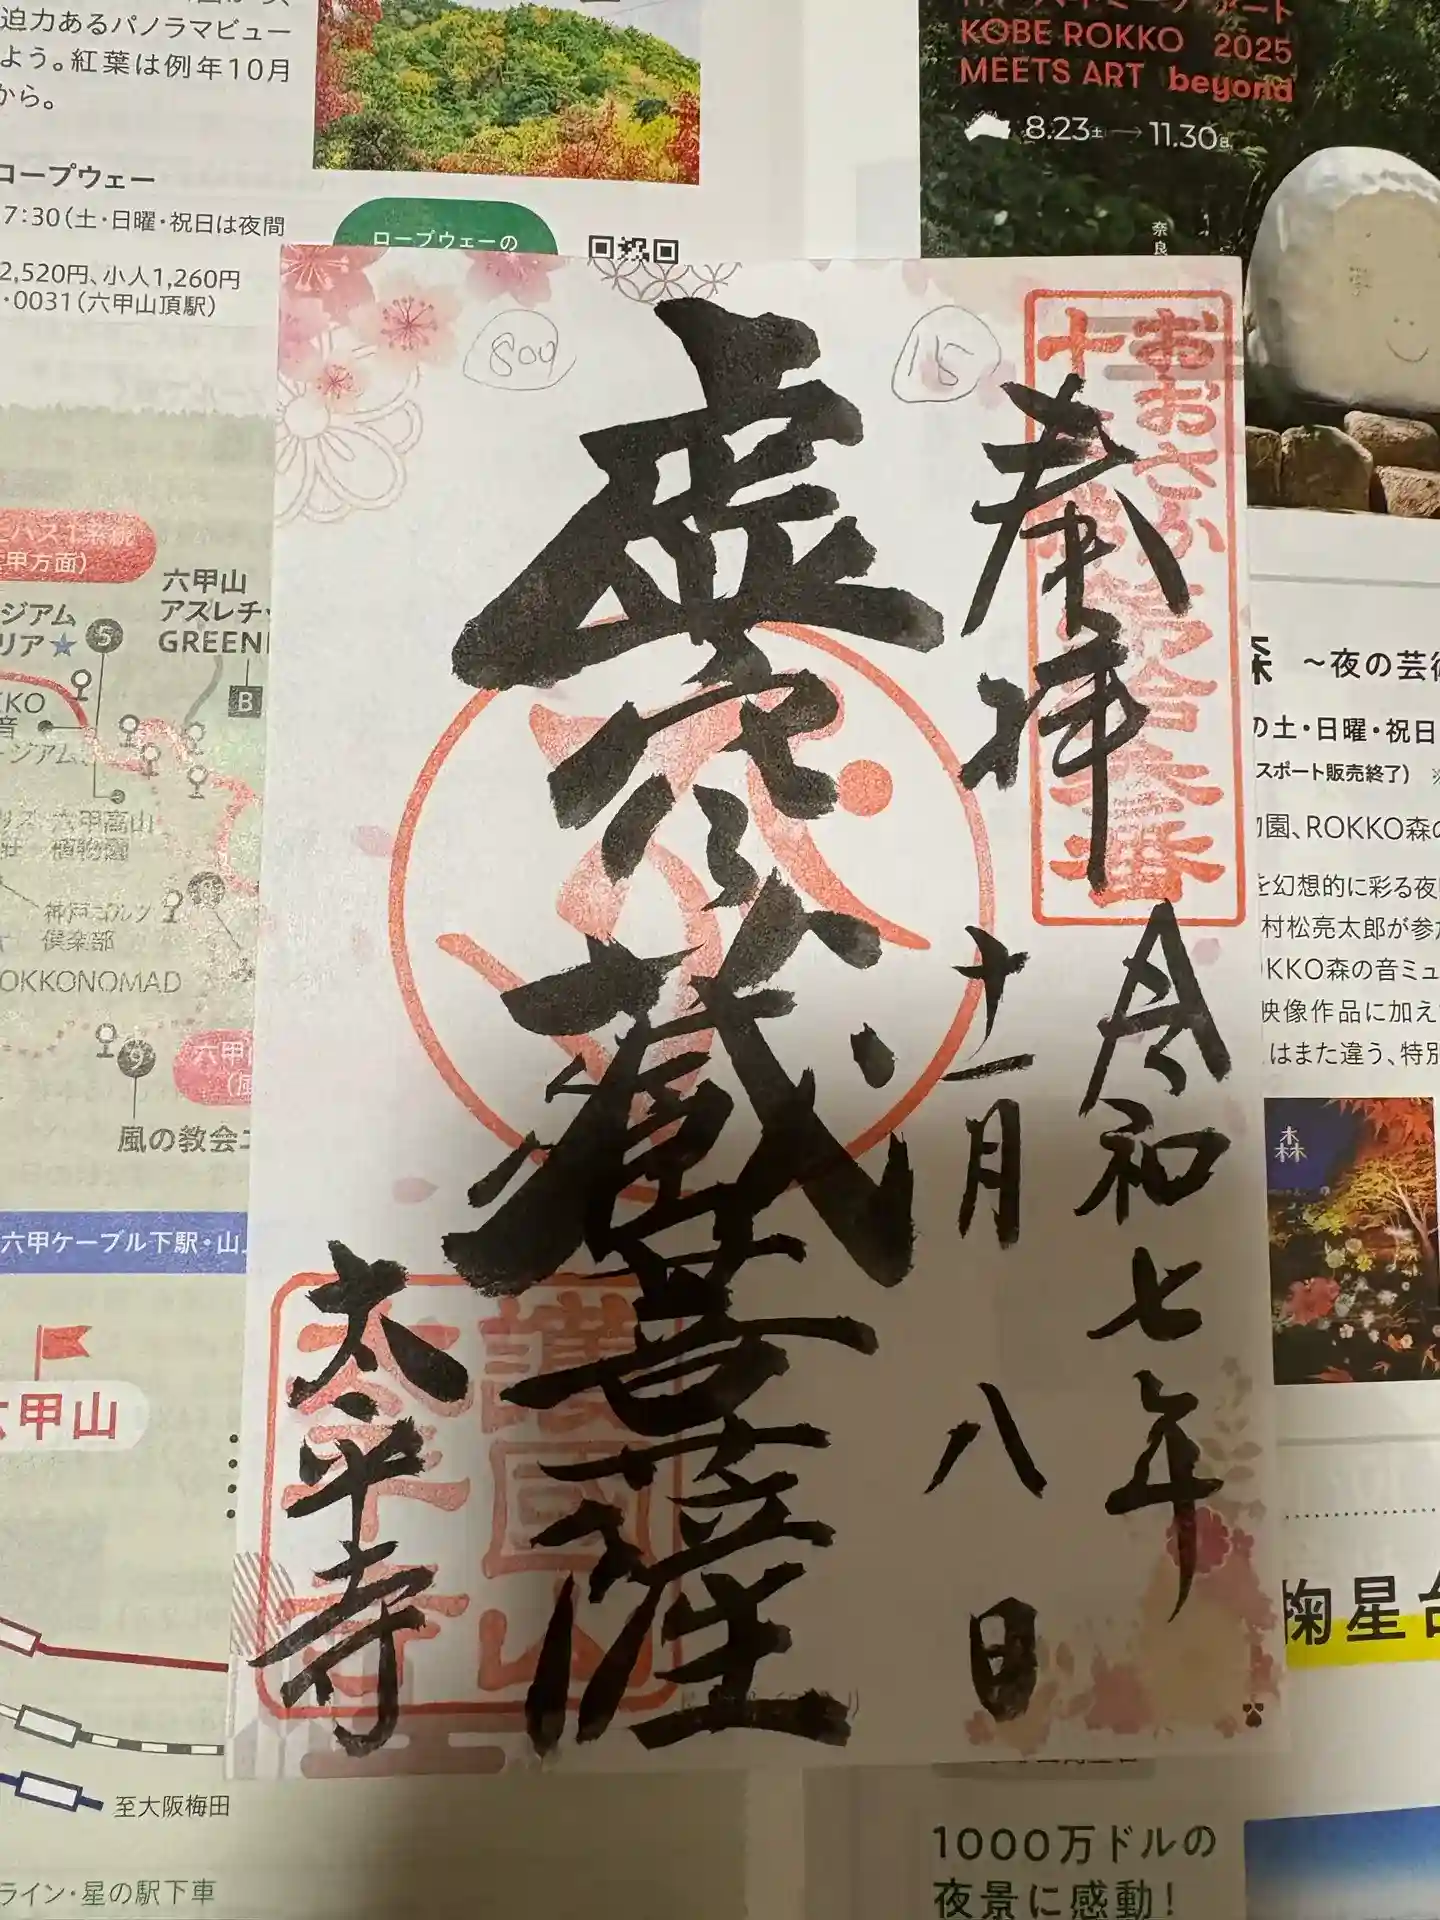 迫力あるパノラマビュー
よう。紅葉は例年10月
から。
ロープウェー
7:30(土・日曜・祝日は夜間
2,520円、小人1,260円
・0031(六甲山頂駅)
ロープウェーの
KOBE ROKKO 2025
MEETS ART beyond
8.23土→11.30日
奈良
809
15
おおさか十三佛霊場第十三番
奉拝
令和七年
十一月八日
虚空蔵菩薩
護国山
太平寺
太平寺
(六甲方面)
六甲山
アスレチ
GREENI
ジアム
リア★
5
B
KKO
音
ージアム
六甲高山
植物園
神戸ゴルフ
倶楽部
OKKONOMAD
9
風の教会
六甲ケーブル下駅・山
六甲山
至大阪梅田
ライン・星の駅下車
森 ~夜の芸術
の土・日曜・祝日
スポート販売終了)
物園、ROKKO森の
を幻想的に彩る夜
村松亮太郎が参
OKKO森の音ミュ
映像作品に加え
はまた違う、特別
森
掬星台
1000万ドルの
夜景に感動!